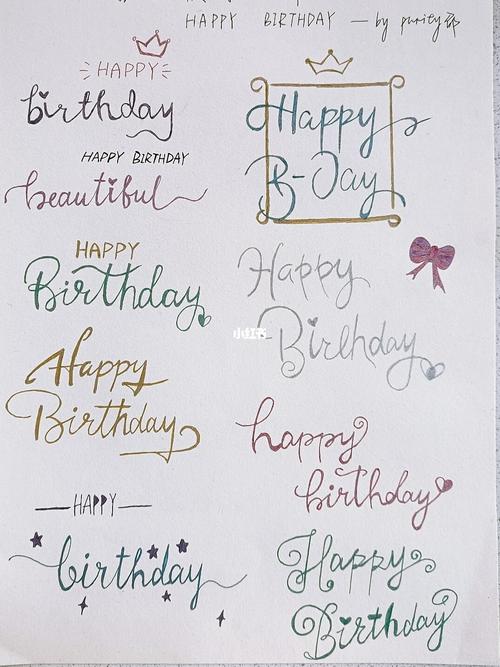 HAPPY BIRTHDAY — by purity
HAPPY
birthday
HAPPY BIRTHDAY
beautiful
HAPPY
Birthday
Happy
Birthday
HAPPY
birthday
Happy
B-Day
Happy
Birthday
小红书
happy
birthday
Happy
Birthday